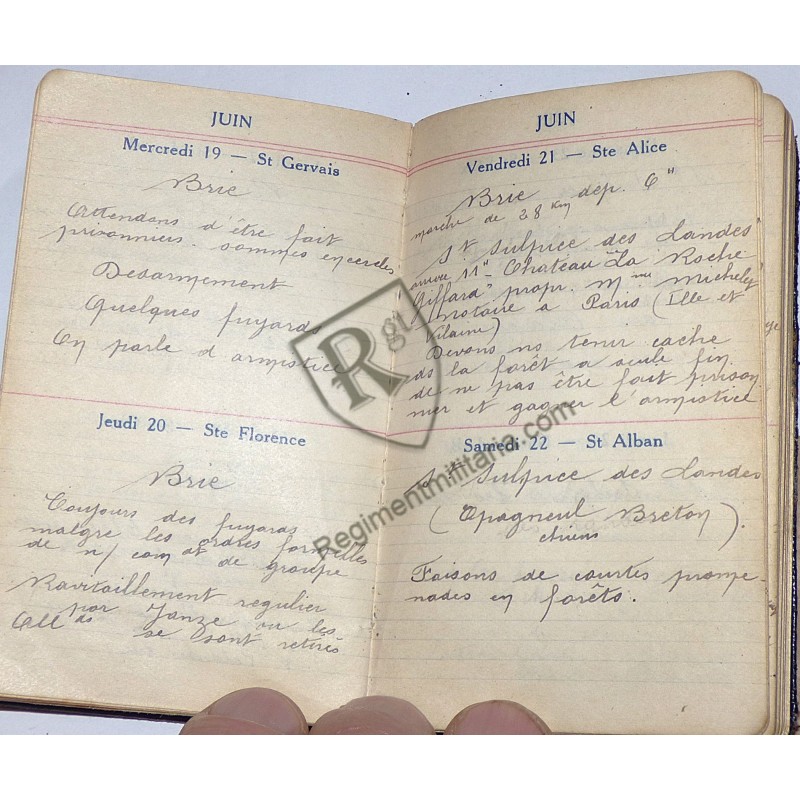 JUIN
Mercredi 19 — St Gervais
Brie
Attendons d'être fait
prisonniers. sommes encercles
Desarmement
Quelques fuyards
On parle d'armistice
Jeudi 20 — Ste Florence
Brie
Toujours des fuyards
malgre les ordres formelles
de n/ comdt de groupe
Ravitaillement regulier
par Janze ou les
Allds se sont retirés
JUIN
Vendredi 21 — Ste Alice
Brie dep. 6H
marche de 28 Km
St Sulpice des Landes
arrivee 11H Chateau "La Roche
Giffard" propr. Mme Michelez
(notaire a Paris (Ille et
Vilaine)
Devons ns tenir cache
ds la forêt a seule fin
de ne pas être fait prison
nier et gagner l'armistice
Samedi 22 — St Alban
St Sulpice des Landes
(Epagneul Breton).
chiens
Faisons de courtes prome-
nades en forêts.
Rgt
Regimentmilitaria.com